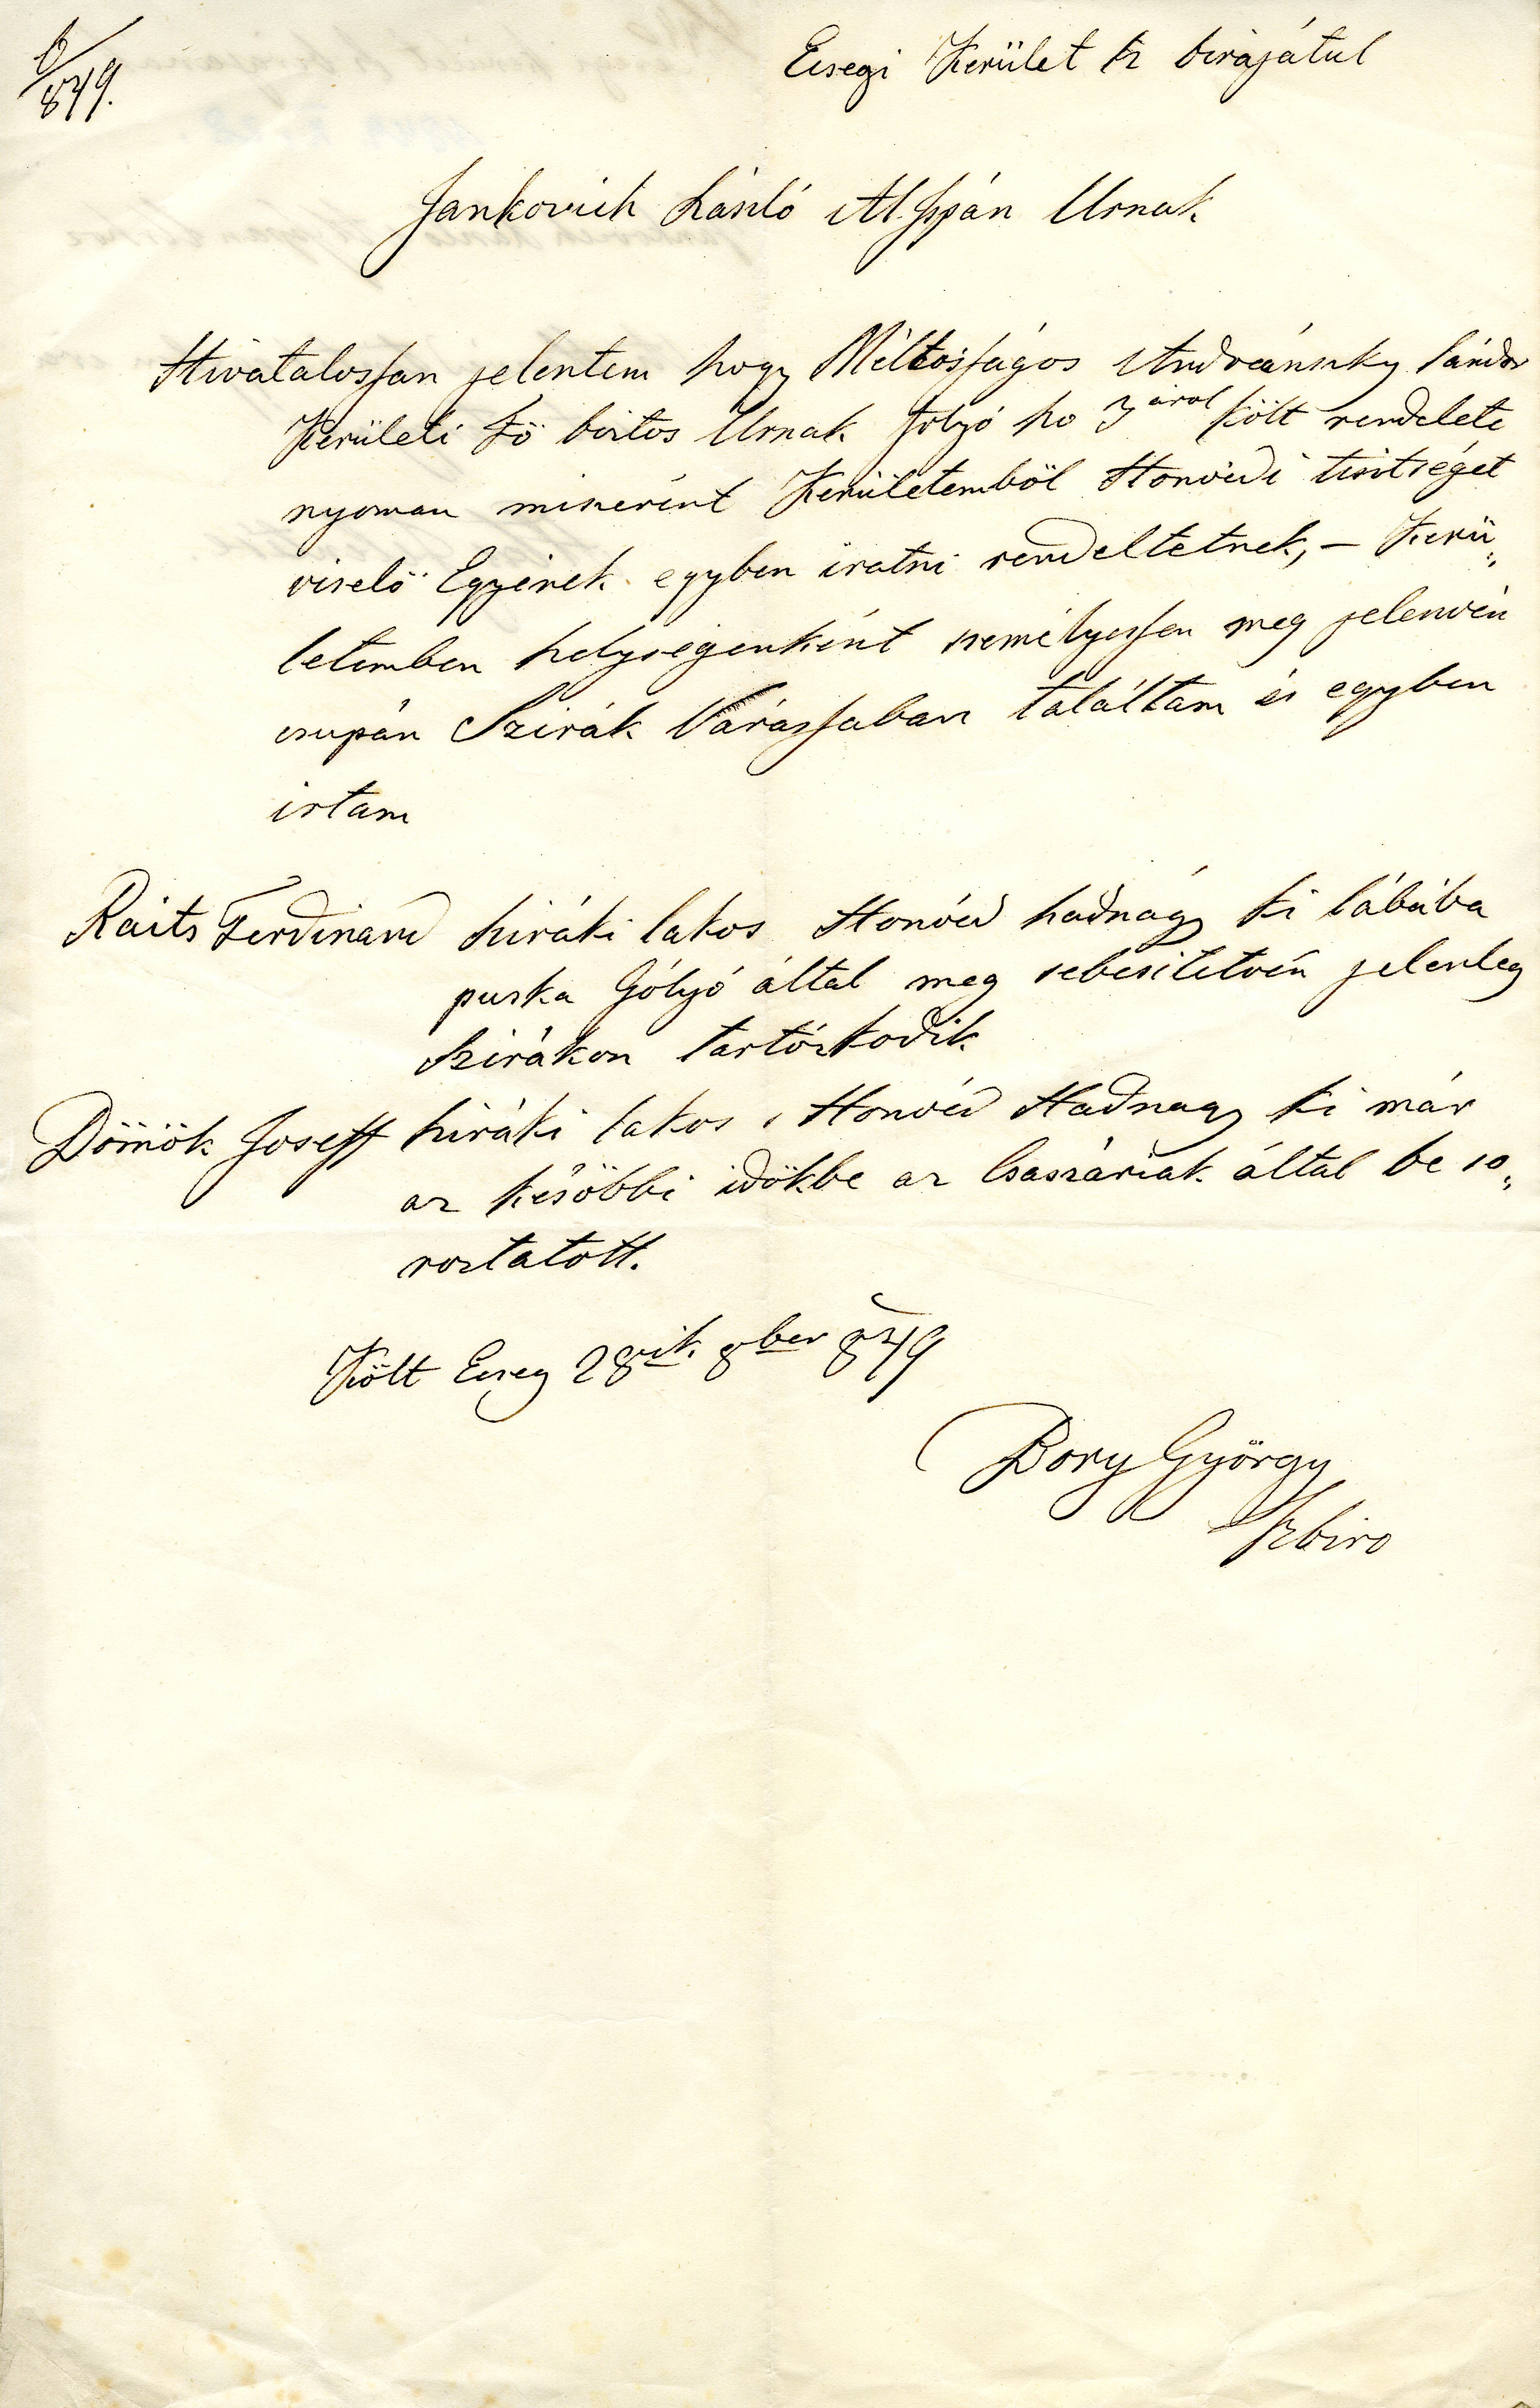 849.
Ecsegi Kerület sz birájátul
Jankovich László Al Ispán Urnak
Hivatalossan jelentem hogy Méltósságos Andreánszky Sándor
Kerületi Fö biztos Urnak folyó ho 3 árol költ rendelete
nyoman miszerént Kerületemböl Honvédi tisztséget
viselö Egyének egyben iratni rendeltetnek, – Kerü„
letemben helységenként személyessen meg jelenvén
csupán Szirák Várassaban találtam és egyben
irtam
Raits Ferdinand sziráki lakos Honvéd hadnagy ki lábába
puska Gólyó által meg sebesitetvén jelenleg
Szirákon tartózkodik
Dömök Joseff sziráki lakos, Honvéd Hadnagy ki már
az késöbbi idökbe az Csaszáriak által be so„
roztatott.
Költ Ecseg 28ik 8ber 849
Bory György
Szbiro